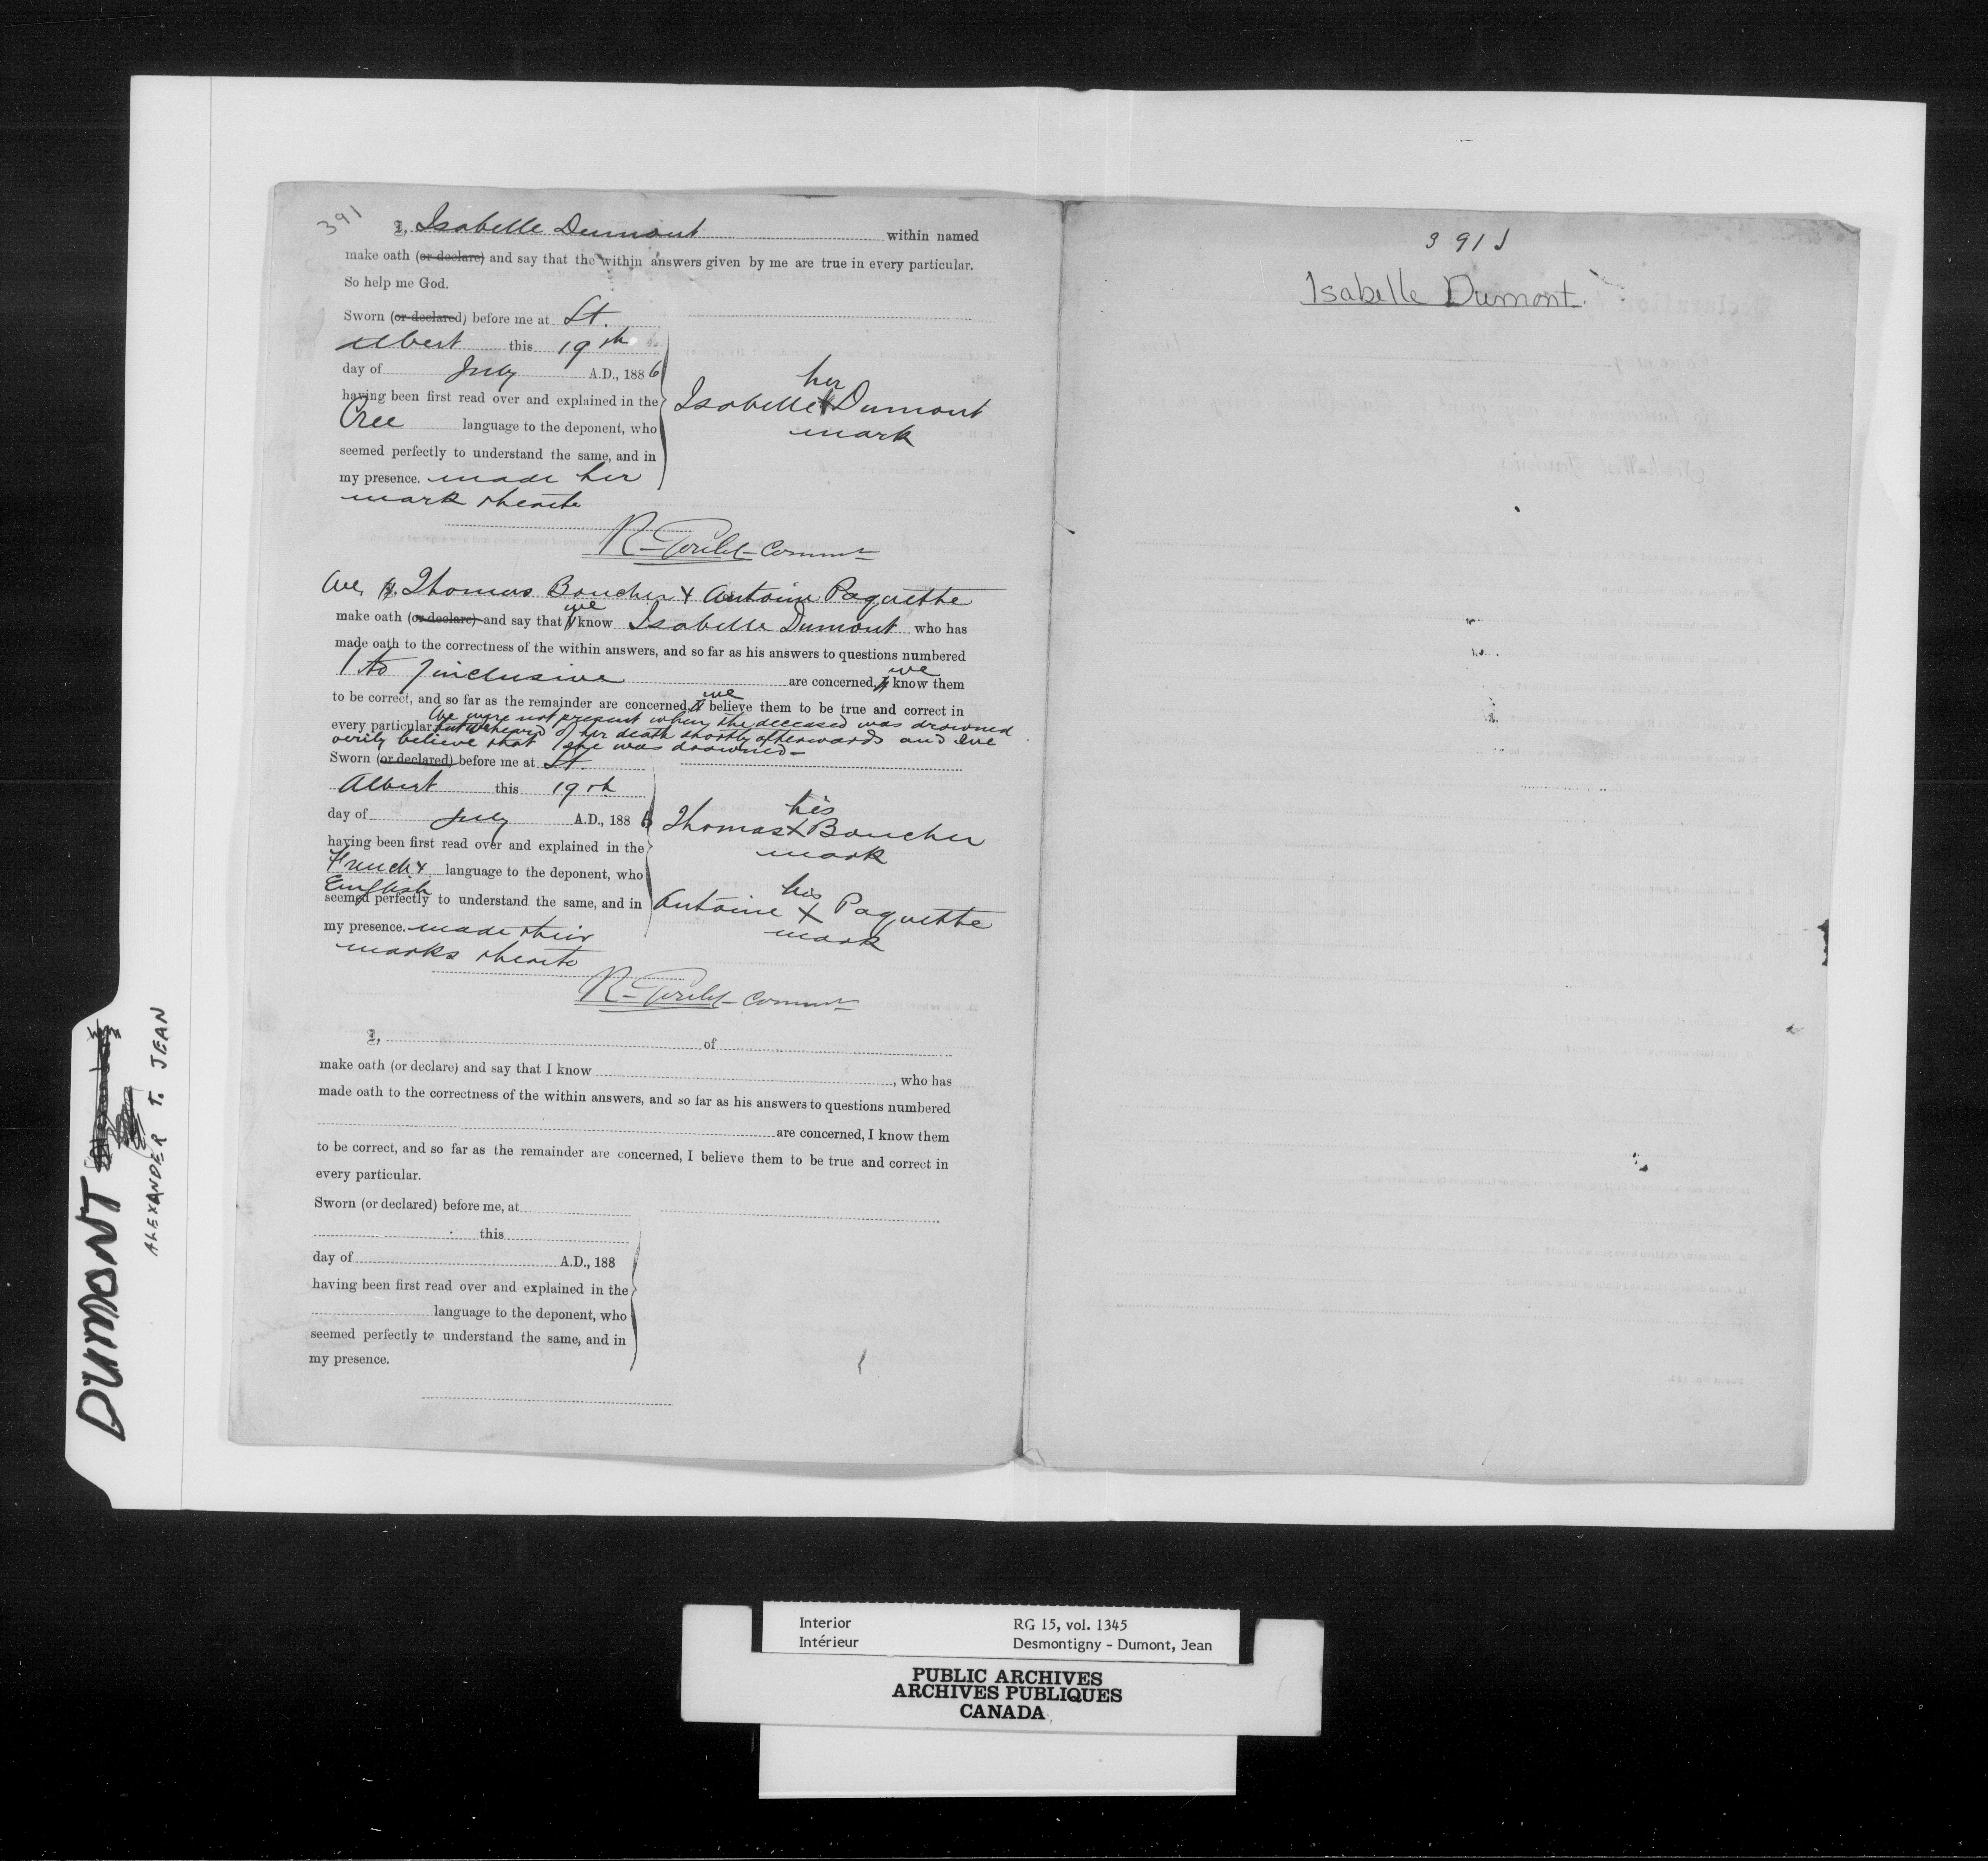 391
I, Isabelle Dumont within named
make oath (or declare) and say that the within answers given by me are true in every particular.
So help me God.
Sworn (or declared) before me at St.
Albert this 19th
day of July A.D., 1886
having been first read over and explained in the
Cree language to the deponent, who
seemed perfectly to understand the same, and in
my presence. made her
mark thereto
her
Isabelle X Dumont
mark
R. Goulet Commr
We, I, Thomas Boucher & Antoine Paquette
make oath (or declare) and say that I we know Isabelle Dumont who has
made oath to the correctness of the within answers, and so far as his answers to questions numbered
1 to 7 inclusive are concerned, I we know them
to be correct, and so far as the remainder are concerned, I we believe them to be true and correct in
every particular. We were not present when the deceased was drowned
but we heard of her death shortly afterwards and we
verily believe that she was drowned –
Sworn (or declared) before me at St.
Albert this 19th
day of July A.D., 1886
having been first read over and explained in the
French & English language to the deponent, who
seemed perfectly to understand the same, and in
my presence. made their
marks thereto
his
Thomas X Boucher
mark
his
Antoine X Paquette
mark
R. Goulet Commr
I, of
make oath (or declare) and say that I know , who has
made oath to the correctness of the within answers, and so far as his answers to questions numbered
are concerned, I know them
to be correct, and so far as the remainder are concerned, I believe them to be true and correct in
every particular.
Sworn (or declared) before me, at
this
day of A.D., 188
having been first read over and explained in the
language to the deponent, who
seemed perfectly to understand the same, and in
my presence.
391
Isabelle Dumont.
DUMONT
ALEXANDER T. JEAN
Interior RG 15, vol. 1345
Intérieur Desmontigny - Dumont, Jean
PUBLIC ARCHIVES
ARCHIVES PUBLIQUES
CANADA